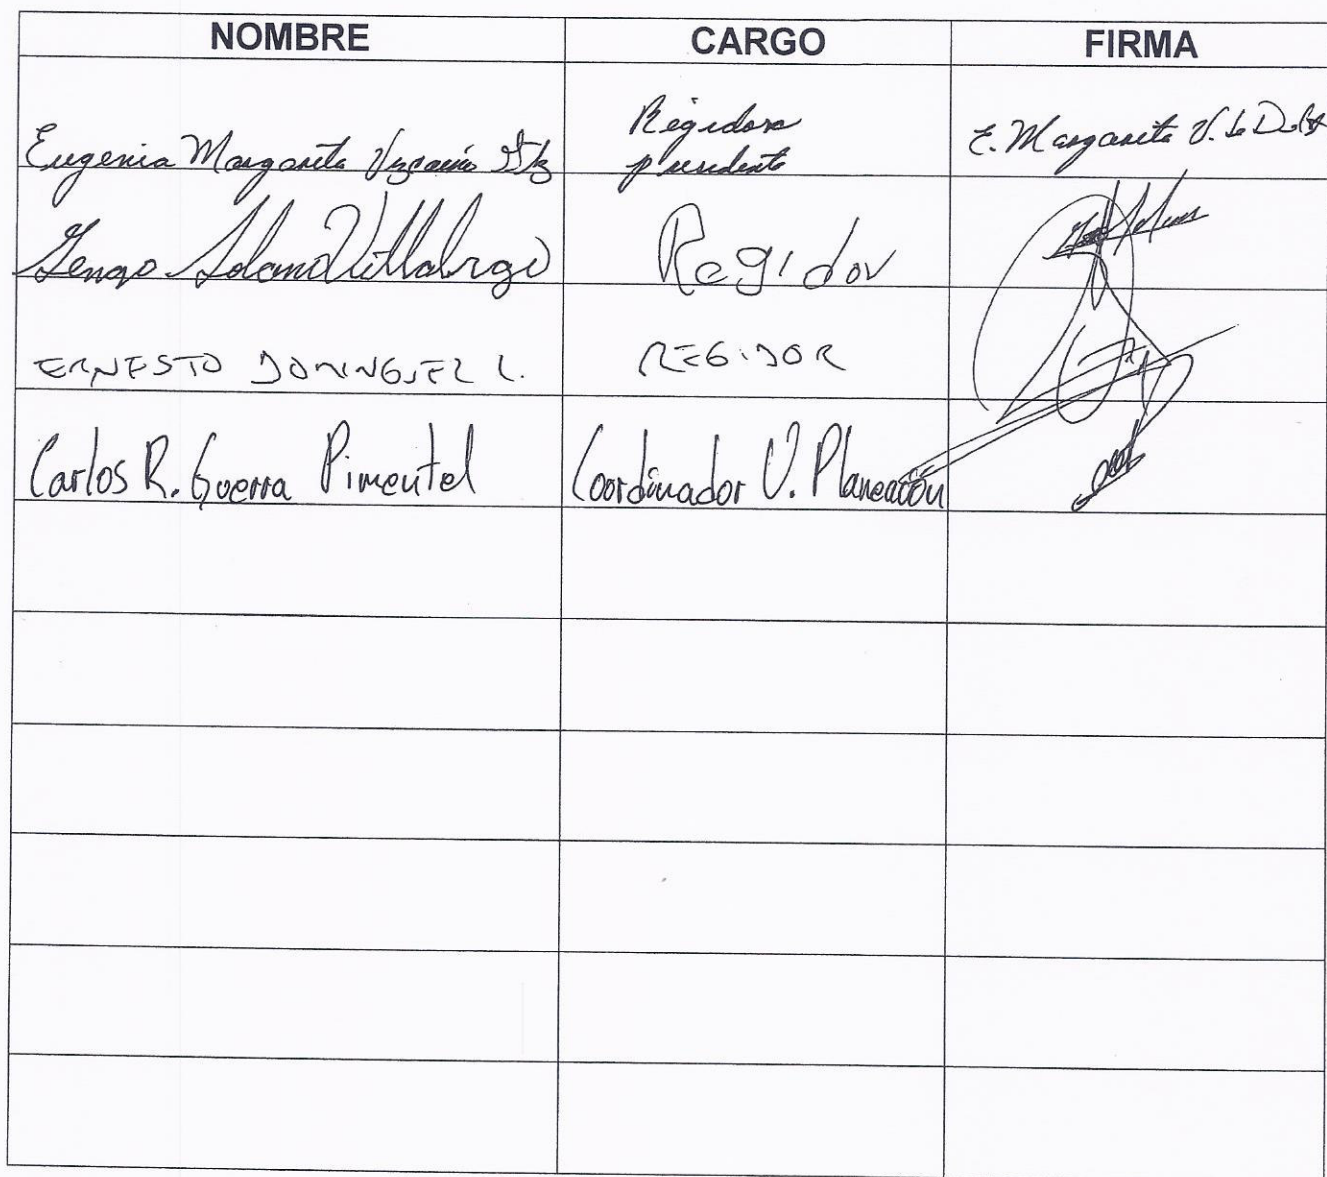 NOMBRE CARGO FIRMA
Eugenia Margarita Vizcaíno Regidora presidente E. Margarita V.
Solano Villalvazo Regidor
ERNESTO DOMINGUEZ L. REGIDOR
Carlos R. Guerra Pimentel Coordinador U. Planeación